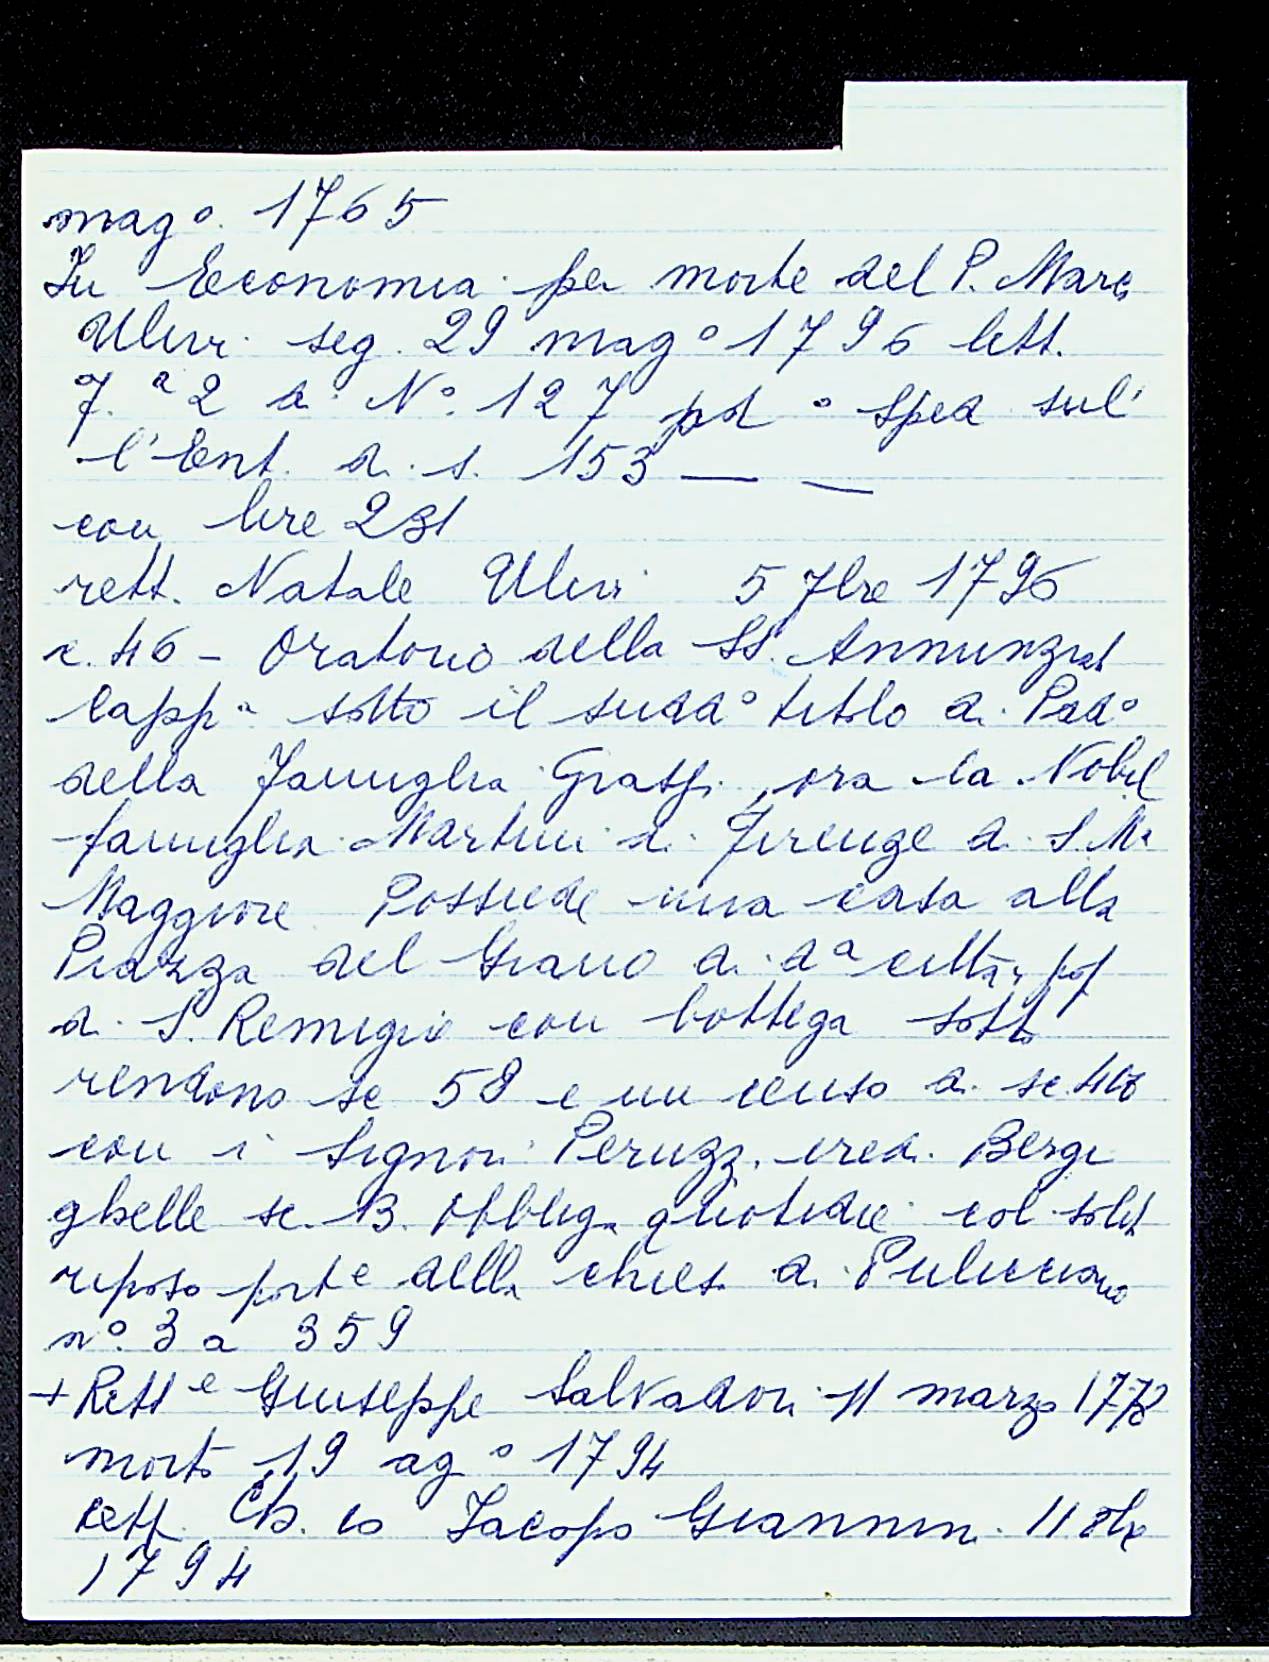 mag°. 1765
In Economia per morte del P. Marc
Ulivi seg. 29 mag° 1796 lett.
7.ª 2 a N°. 127 pd ° sped sul'
l'Ent. di s. 153 — —
con lire 231
rett. Natale Ulivi 5 7bre 1796
c. 46 - Oratorio della SS. Annunziat
Capp ª sotto il sudd° titolo di Pad°
della Famiglia Grassi, ora la Nobil
famiglia Martini di Firenze di S. M.
Maggiore Possiede una casa alla
Piazza del Grano di dª città, pop
di S. Remigio con bottega sotto
rendono sc 58 e un censo di sc. 400
con i Signori Peruzzi, ered. Bergi
ghelle sc. 13. Obbliga quotidie col solit
riposo parte della chiesa di Pulicciano
n°. 3 a 359
+ Rett e Giuseppe Salvadori 11 marzo 1773
morto 19 ag ° 1794
rett. Ch. co Jacopo Giannini 11 8bre
1794